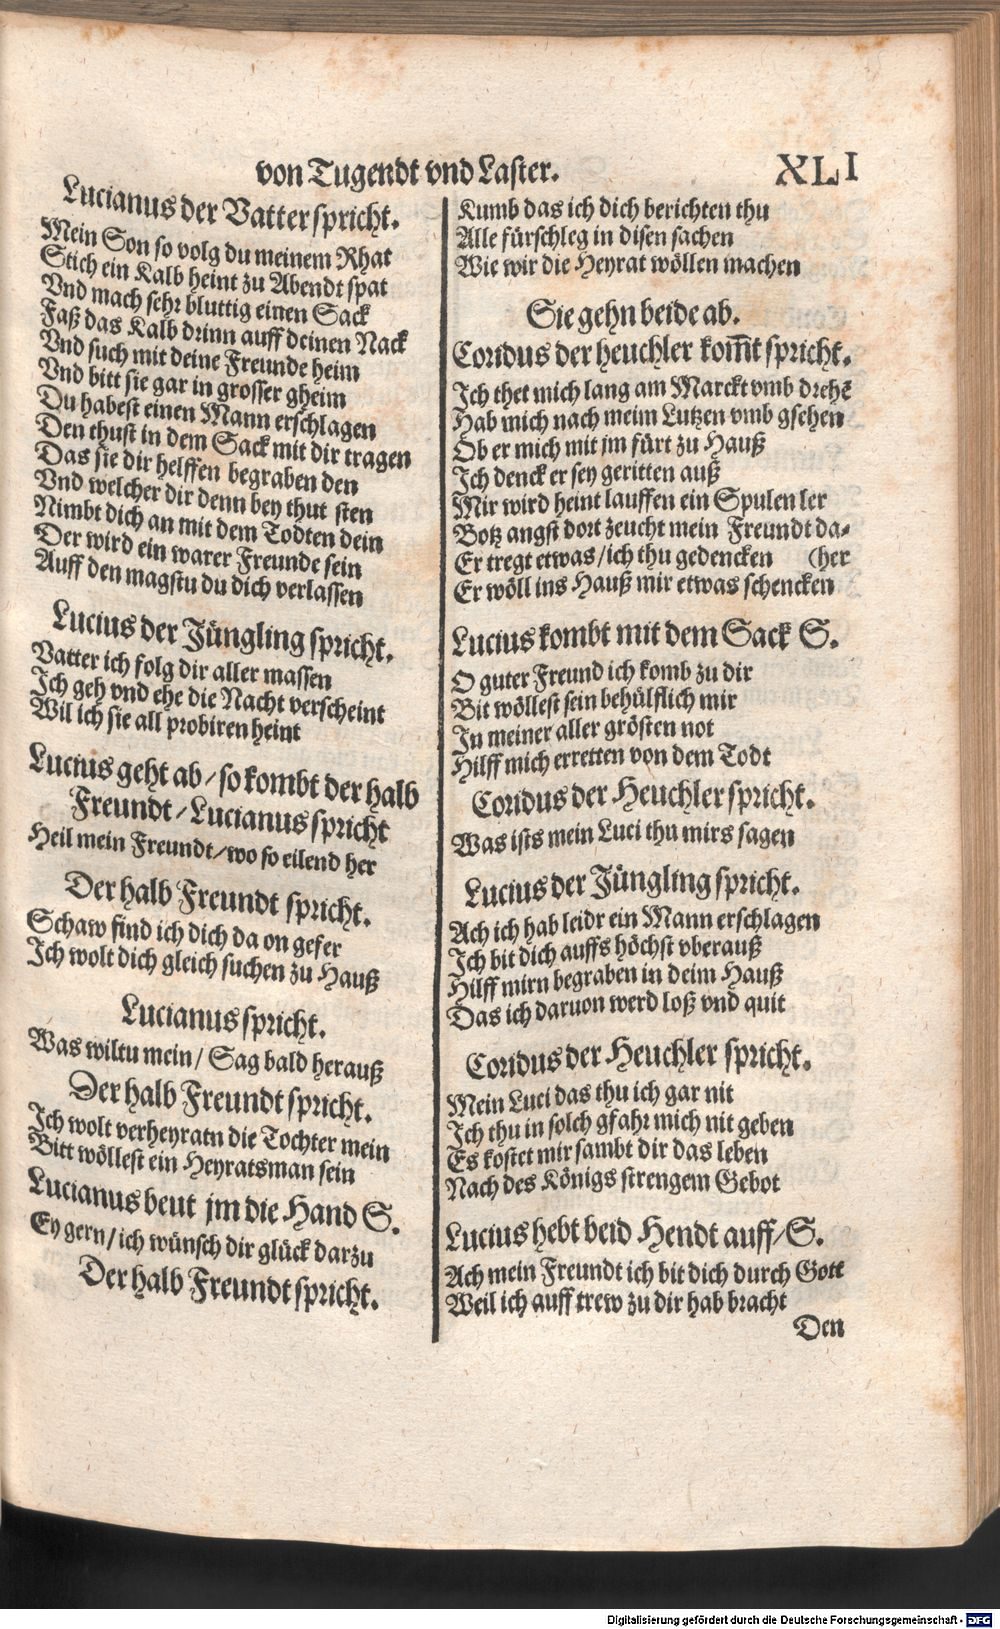 von Tugendt vnd Laster. XLI
Lucianus der Vatter spricht.
Mein Son so volg du meinem Rhat
Stich ein Kalb heint zu Abendt spat
Vnd mach sehr bluttig einen Sack
Faß das Kalb drinn auff deinen Nack
Vnd such mit deine Freunde heim
Vnd bitt sie gar in grosser gheim
Du habest einen Mann erschlagen
Den thust in dem Sack mit dir tragen
Das sie dir helffen begraben den
Vnd welcher dir denn bey thut sten
Nimbt dich an mit dem Todten dein
Der wird ein warer Freunde sein
Auff den magstu du dich verlassen
Lucius der Jüngling spricht.
Vatter ich folg dir aller massen
Ich geh vnd ehe die Nacht verscheint
Wil ich sie all probiren heint
Lucius geht ab/ so kombt der halb
Freundt/ Lucianus spricht
Heil mein Freundt/ wo so eilend her
Der halb Freundt spricht.
Schaw find ich dich da on gefer
Ich wolt dich gleich suchen zu Hauß
Lucianus spricht.
Was wiltu mein/ Sag bald herauß
Der halb Freundt spricht.
Ich wolt verheyratn die Tochter mein
Bitt wöllest ein Heyratsman sein
Lucianus beut jm die Hand S.
Ey gern/ ich wünsch dir glück darzu
Der halb Freundt spricht.
Kumb das ich dich berichten thu
Alle fürschleg in disen sachen
Wie wir die Heyrat wöllen machen
Sie gehn beide ab.
Coridus der heuchler kom̄t spricht.
Ich thet mich lang am Marckt vmb drehē
Hab mich nach meim Lutzen vmb gsehen
Ob er mich mit jm fürt zu Hauß
Ich denck er sey geritten auß
Mir wird heint lauffen ein Spulen ler
Botz angst dort zeucht mein Freundt da-
Er tregt etwas/ ich thu gedencken (her
Er wöll ins Hauß mir etwas schencken
Lucius kombt mit dem Sack S.
O guter Freund ich komb zu dir
Bit wöllest sein behülflich mir
In meiner aller grösten not
Hilff mich erretten von dem Todt
Coridus der Heuchler spricht.
Was ists mein Luci thu mirs sagen
Lucius der Jüngling spricht.
Ach ich hab leidr ein Mann erschlagen
Ich bit dich auffs höchst vberauß
Hilff mirn begraben in deim Hauß
Das ich daruon werd loß vnd quit
Coridus der Heuchler spricht.
Mein Luci das thu ich gar nit
Ich thu in solch gfahr mich nit geben
Es kostet mir sambt dir das leben
Nach des Königs strengem Gebot
Lucius hebt beid Hendt auff/ S.
Ach mein Freundt ich bit dich durch Gott
Weil ich auff trew zu dir hab bracht
Den
Digitalisierung gefördert durch die Deutsche Forschungsgemeinschaft - DFG